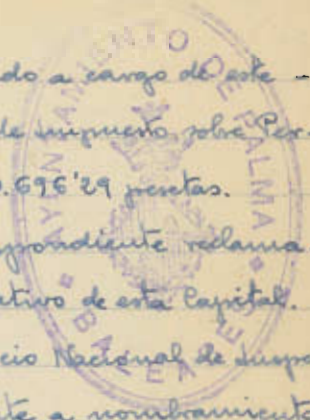 do a cargo de este
de Impuesto sobre Per-
0.696'29 pesetas.
spondiente reclama
ativo de esta Capital.
cio Nacional de Inspe
te a nombramiento
AYUNTAMIENTO DE PALMA
BALEARES